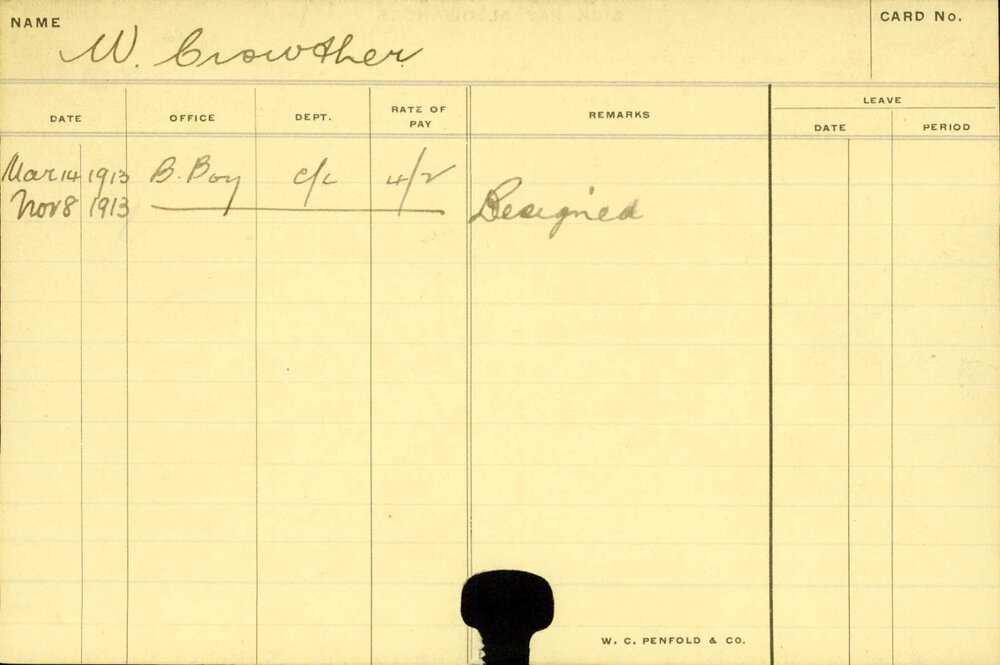 NAME W. Crowther CARD No.
DATE OFFICE DEPT. RATE OF PAY REMARKS LEAVE DATE PERIOD
Mar 14 1913 B. Boy c/c 4/2
Nov 8 1913 Resigned
W. C. PENFOLD & CO.